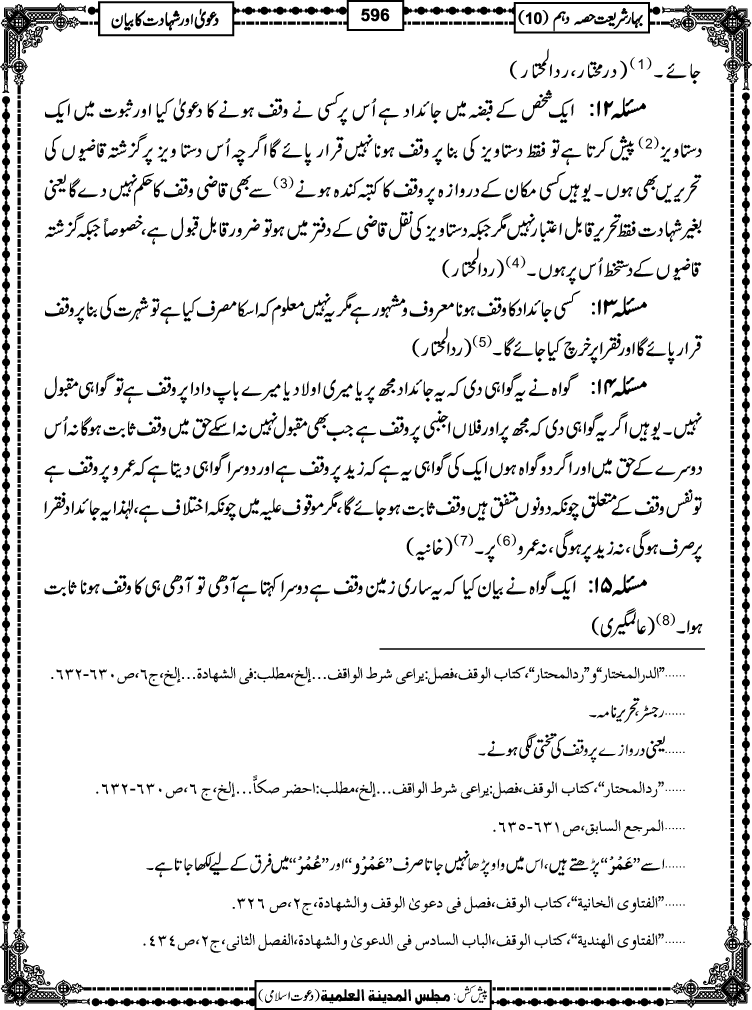 بہارِ شریعت حصہ دہم (10)
596
دعویٰ اور شہادت کا بیان
جائے۔(1) (درمختار، ردالمحتار)
مسئلہ ۱۲: ایک شخص کے قبضہ میں جائداد ہے اُس پر کسی نے وقف ہونے کا دعویٰ کیا اور ثبوت میں ایک
دستاویز(2) پیش کرتا ہے تو فقط دستاویز کی بنا پر وقف ہونا نہیں قرار پائے گا اگرچہ اُس دستاویز پر گزشتہ قاضیوں کی
تحریریں بھی ہوں۔ یوہیں کسی مکان کے دروازہ پر وقف کا کتبہ کندہ ہونے(3) سے بھی قاضی وقف کا حکم نہیں دے گا یعنی
بغیر شہادت فقط تحریر قابل اعتبار نہیں مگر جبکہ دستاویز کی نقل قاضی کے دفتر میں ہو تو ضرور قابل قبول ہے، خصوصاً جبکہ گزشتہ
قاضیوں کے دستخط اُس پر ہوں۔(4) (ردالمحتار)
مسئلہ ۱۳: کسی جائداد کا وقف ہونا معروف و مشہور ہے مگر یہ نہیں معلوم کہ اسکا مصرف کیا ہے تو شہرت کی بنا پر وقف
قرار پائے گا اور فقرا پر خرچ کیا جائے گا۔(5) (ردالمحتار)
مسئلہ ۱۴: گواہ نے یہ گواہی دی کہ یہ جائداد مجھ پر یا میری اولاد یا میرے باپ دادا پر وقف ہے تو گواہی مقبول
نہیں۔ یوہیں اگر یہ گواہی دی کہ مجھ پر اور فلاں اجنبی پر وقف ہے جب بھی مقبول نہیں نہ اسکے حق میں وقف ثابت ہوگا نہ اُس
دوسرے کے حق میں اور اگر دو گواہ ہوں ایک کی گواہی یہ ہے کہ زید پر وقف ہے اور دوسرا گواہی دیتا ہے کہ عمرو پر وقف ہے
تو نفس وقف کے متعلق چونکہ دونوں متفق ہیں وقف ثابت ہو جائے گا، مگر موقوف علیہ میں چونکہ اختلاف ہے، لہٰذا یہ جائداد فقرا
پر صرف ہوگی، نہ زید پر ہوگی، نہ عمرو(6) پر۔(7) (خانیہ)
مسئلہ ۱۵: ایک گواہ نے بیان کیا کہ یہ ساری زمین وقف ہے دوسرا کہتا ہے آدھی تو آدھی ہی کا وقف ہونا ثابت
ہوا۔(8) (عالمگیری)
......”الدرالمختار“ و”ردالمحتار“، کتاب الوقف، فصل: یراعی شرط الواقف...إلخ، مطلب: فی الشھادۃ...إلخ، ج٦، ص٦٣٠-٦٣٢.
......رجسٹر، تحریر نامہ۔
......یعنی دروازے پر وقف کی تختی لگی ہونے۔
......”ردالمحتار“، کتاب الوقف، فصل: یراعی شرط الواقف...إلخ، مطلب: احضر صکاً...إلخ، ج ٦، ص ٦٣٠-٦٣٢.
......المرجع السابق، ص ٦٣١-٦٣٥.
......اسے ”عَمْرْ“ پڑھتے ہیں، اس میں واو پڑھا نہیں جاتا صرف ”عَمْرُو“ اور ”عُمُرْ“ میں فرق کے لیے لکھا جاتا ہے۔
......”الفتاوی الخانیۃ“، کتاب الوقف، فصل فی دعویٰ الوقف والشھادۃ، ج٢، ص ٣٢٦.
......”الفتاوی الھندیۃ“، کتاب الوقف، الباب السادس فی الدعویٰ والشھادۃ، الفصل الثانی، ج٢، ص ٤٣٤.
پیش کش: مجلس المدینۃ العلمیۃ (دعوت اسلامی)